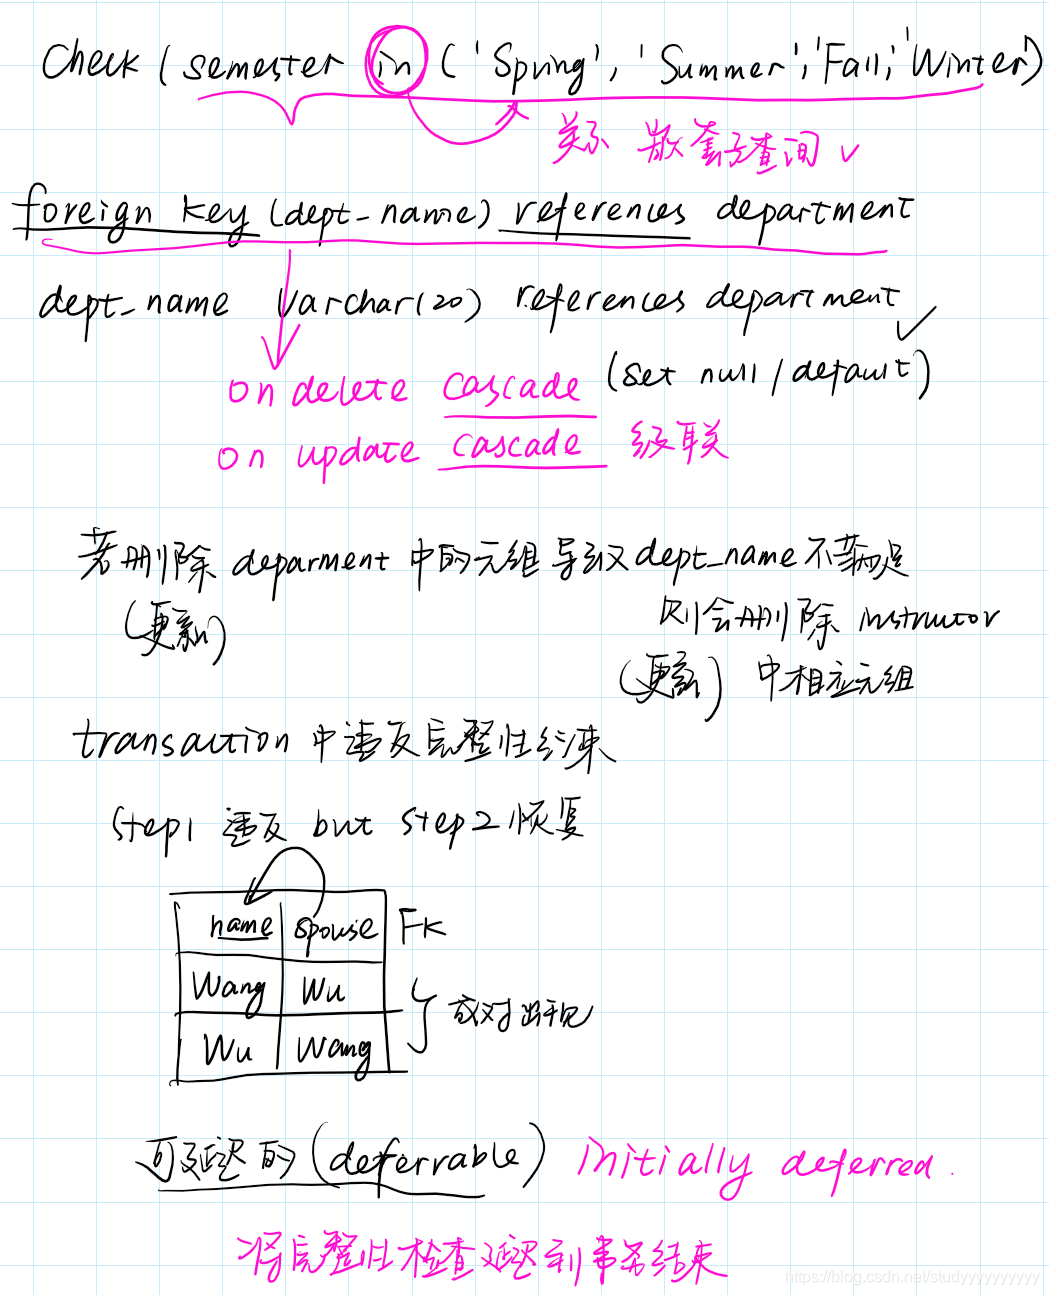 Check (semester in ('Spring', 'Summer', 'Fall', 'Winter')
关系 嵌套子查询 ✓
foreign key (dept_name) references department
dept_name Varchar(20) references department
on delete cascade (set null / default)
on update cascade 级联
若删除 deparment 中的元组导致 dept_name 不满足
(更新) 则会删除 instructor
(更新) 中相应元组
transaction 中违反完整性约束
step1 违反 but step2 恢复
name spouse FK
Wang Wu
成对出现
Wu Wang
可延迟的 (deferrable) initially deferred.
将完整性检查延迟到事务结束
https://blog.csdn.net/studyyyyyyyyyy